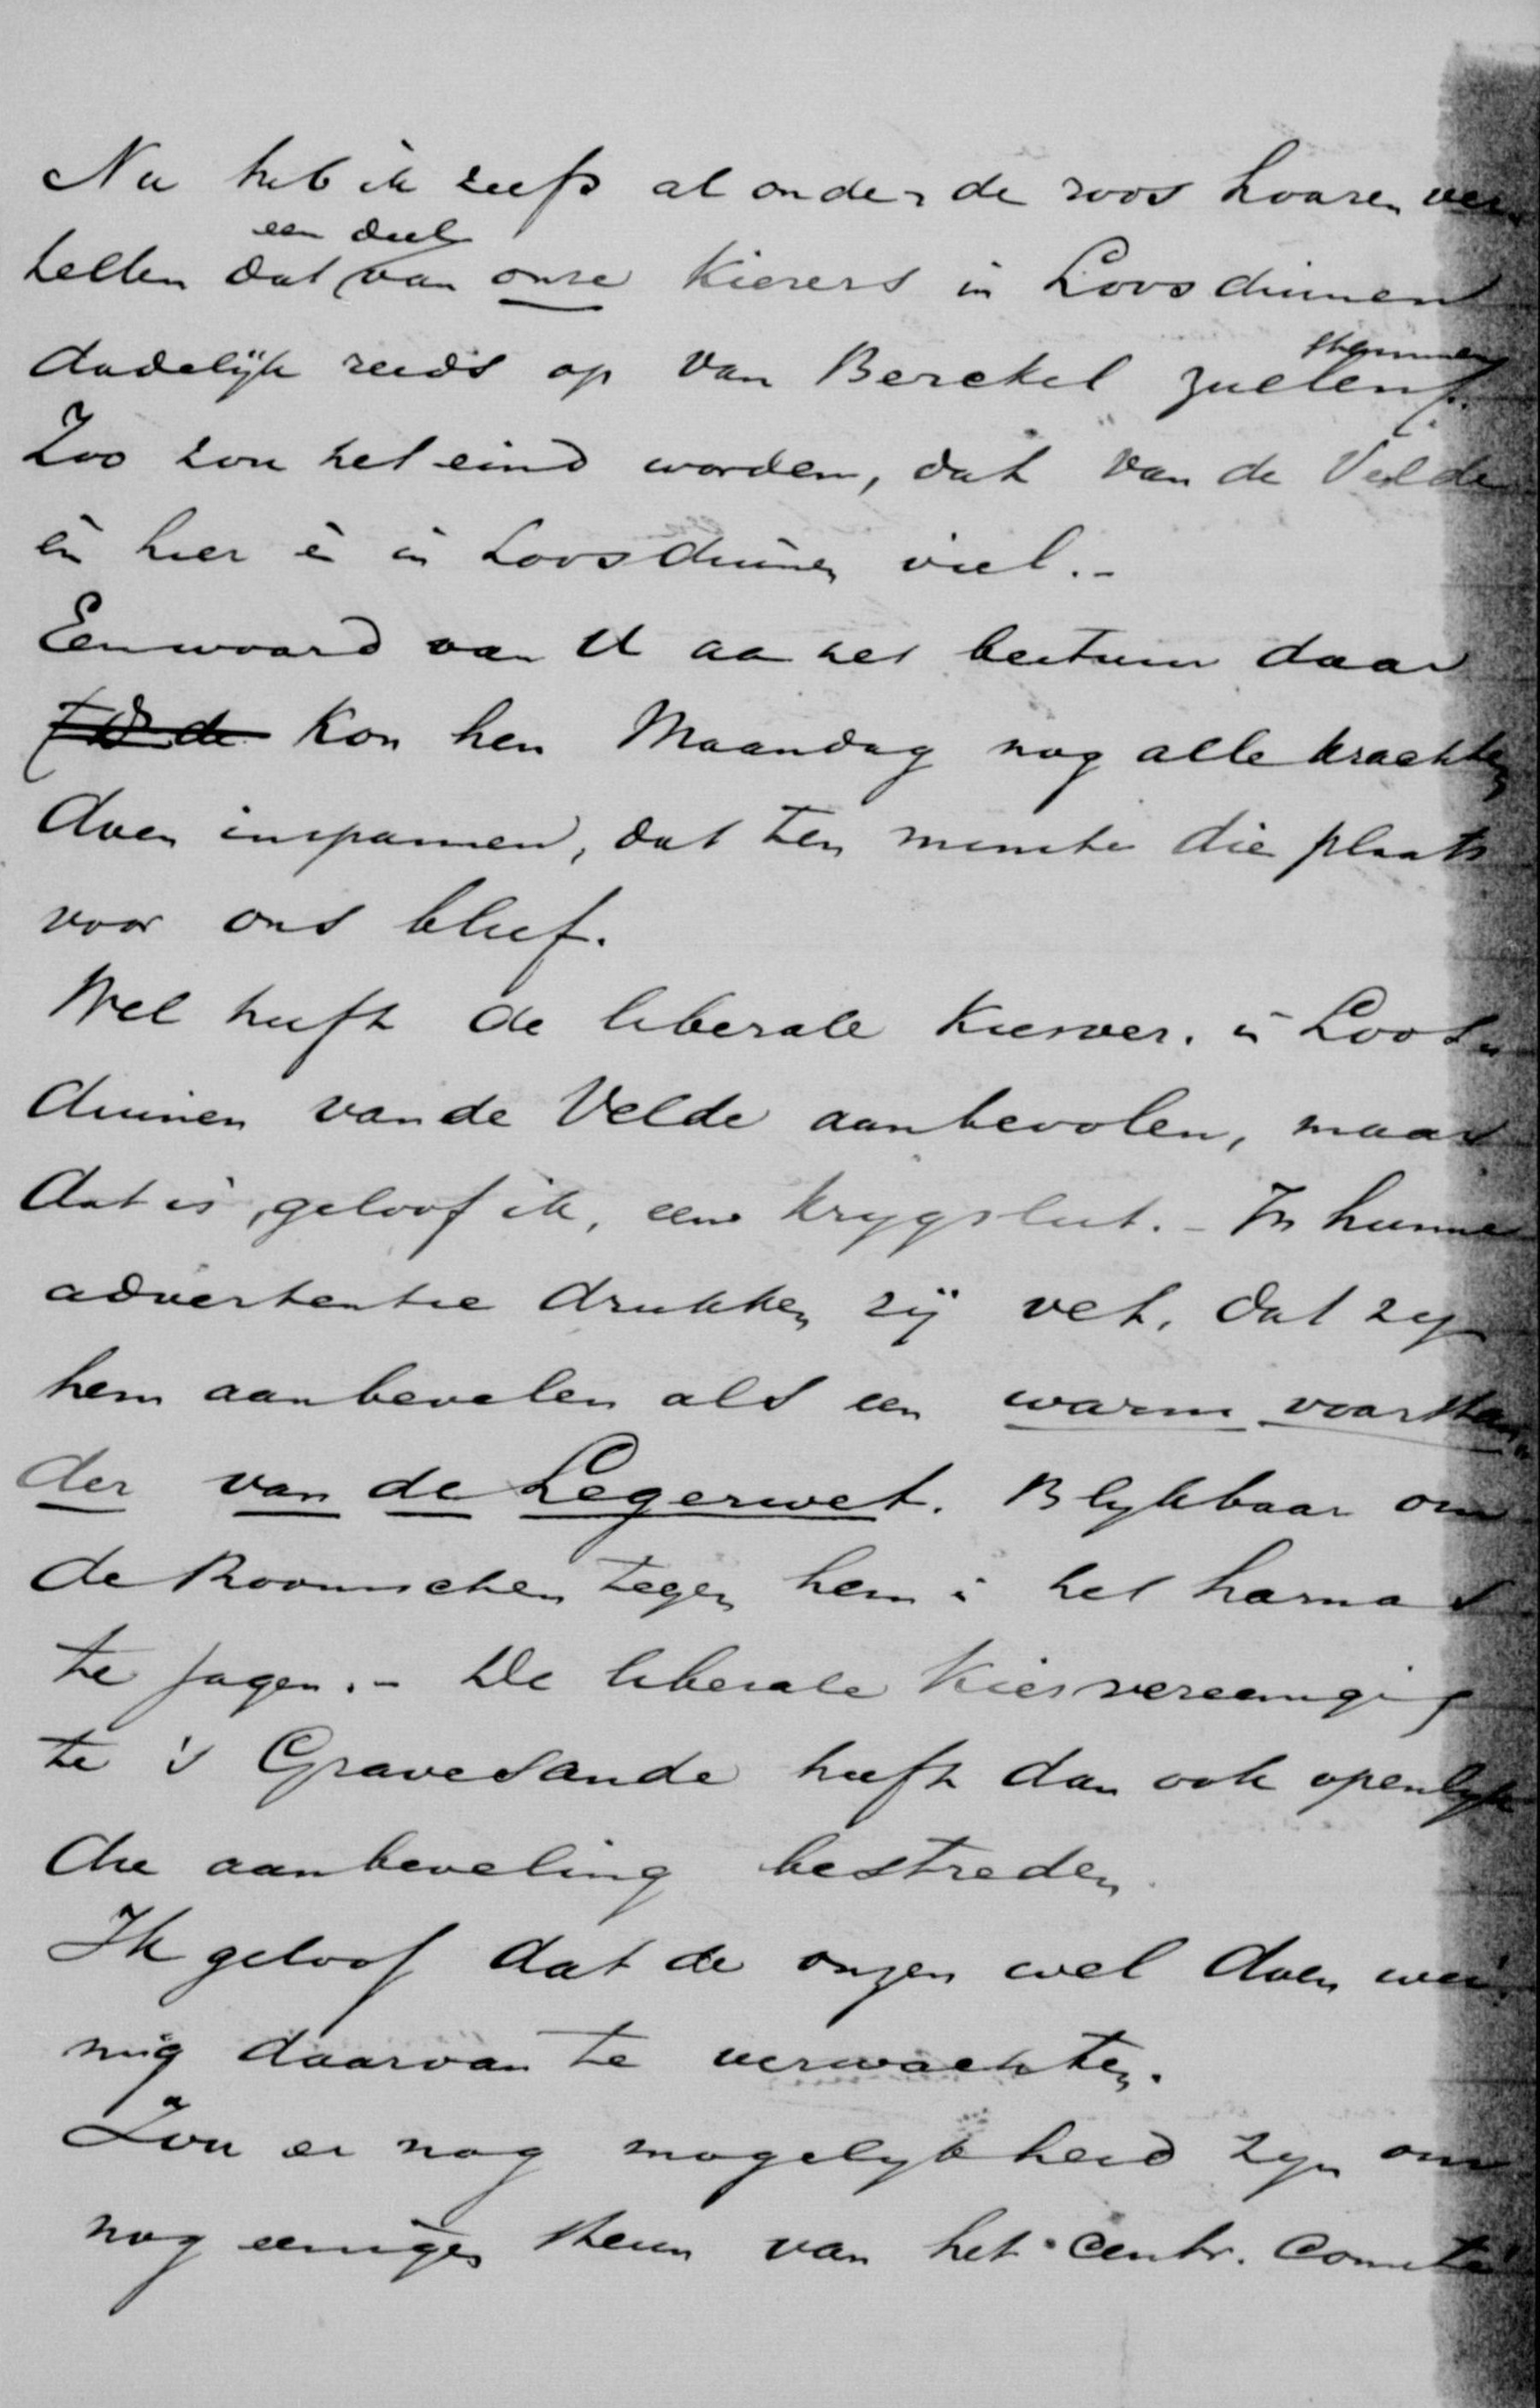 Nu heb ik zelfs al onder de roos hooren ver-
tellen dat een deel van onze Kiezers in Loosduinen
dadelijk reeds op van Berckel zullen stemmen.
Zoo zou het eind worden, dat van de Velde
èn hier è in Loosduinen viel.-
Een woord van U aa het bestuur daar
kon hen Maandag nog alle krachten
doen inspannen, dat ten minste die plaats
voor ons bleef.
Wel heeft de liberale Kiesver. in Loos-
duinen van de Velde aanbevolen, maar
dat is, geloof ik, een krygslist.- In hunne
advertentie drukken zij vet, dat zy
hem aanbevelen als een warm voorstan-
der van de Legerwet. Blykbaar om
de Roomschen tegen hem i het harnas
te jagen.- De liberale Kiesvereeniging
te 's Gravesande heeft dan ook openlyk
die aanbeveling bestreden.
Ik geloof dat de onzen wel doen wei-
nig daarvan te verwachten.
Zou er nog mogelykheid zyn om
nog eenigen steun van het Centr. Comité